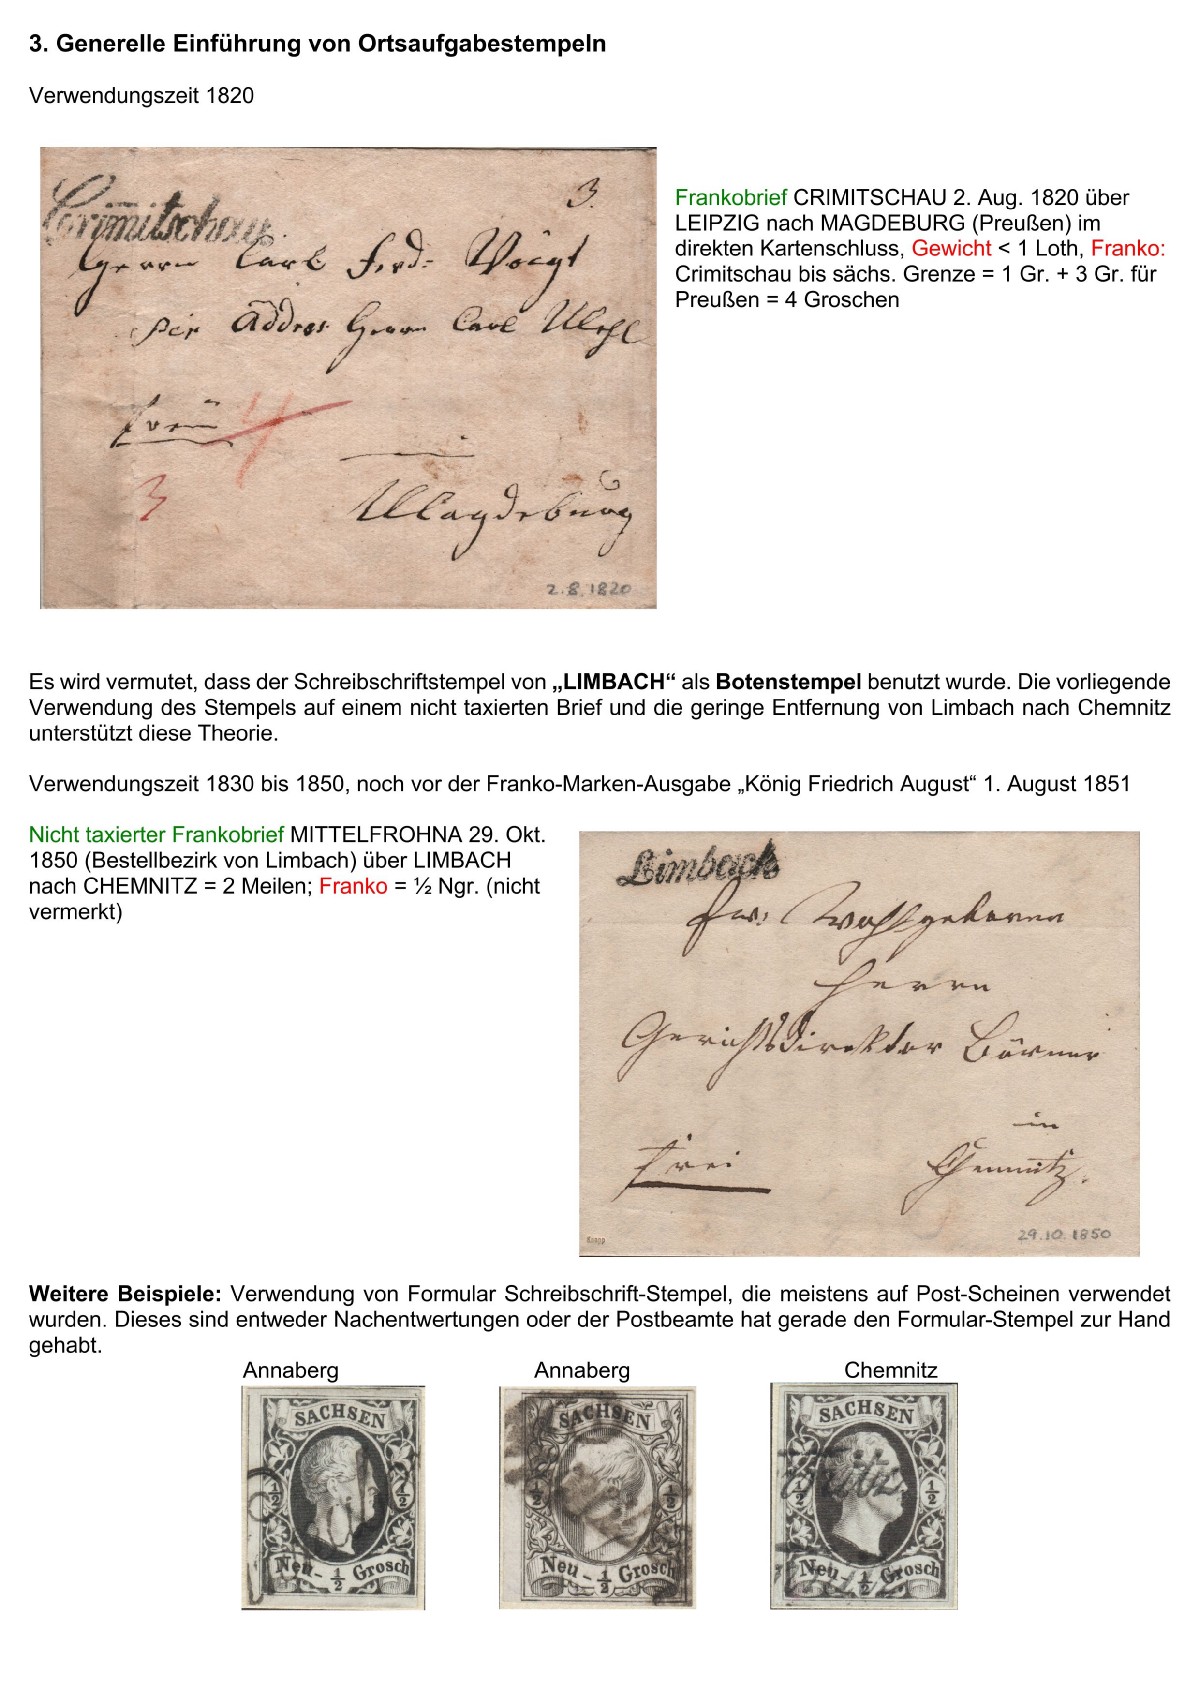 3. Generelle Einführung von Ortsaufgabestempeln
Verwendungszeit 1820
Crimitschau
3.
Herrn Carl Ferd: Voigt
per Addres Herrn Carl
4
3
Magdeburg
2.8.1820
Frankobrief CRIMITSCHAU 2. Aug. 1820 über
LEIPZIG nach MAGDEBURG (Preußen) im
direkten Kartenschluss, Gewicht < 1 Loth, Franko:
Crimitschau bis sächs. Grenze = 1 Gr. + 3 Gr. für
Preußen = 4 Groschen
Es wird vermutet, dass der Schreibschriftstempel von „LIMBACH“ als Botenstempel benutzt wurde. Die vorliegende
Verwendung des Stempels auf einem nicht taxierten Brief und die geringe Entfernung von Limbach nach Chemnitz
unterstützt diese Theorie.
Verwendungszeit 1830 bis 1850, noch vor der Franko-Marken-Ausgabe „König Friedrich August“ 1. August 1851
Nicht taxierter Frankobrief MITTELFROHNA 29. Okt.
1850 (Bestellbezirk von Limbach) über LIMBACH
nach CHEMNITZ = 2 Meilen; Franko = ½ Ngr. (nicht
vermerkt)
Limbach
Ew: Wohlgeboren
Herrn
Gerichtsdirektor Börner
in
frei Chemnitz.
29.10.1850
Knapp
Weitere Beispiele: Verwendung von Formular Schreibschrift-Stempel, die meistens auf Post-Scheinen verwendet
wurden. Dieses sind entweder Nachentwertungen oder der Postbeamte hat gerade den Formular-Stempel zur Hand
gehabt.
Annaberg Annaberg Chemnitz
SACHSEN
½ ½
Neu- ½ Grosch
SACHSEN
½ ½
Neu - ½ Grosch
SACHSEN
½ ½
Neu- ½ Grosch